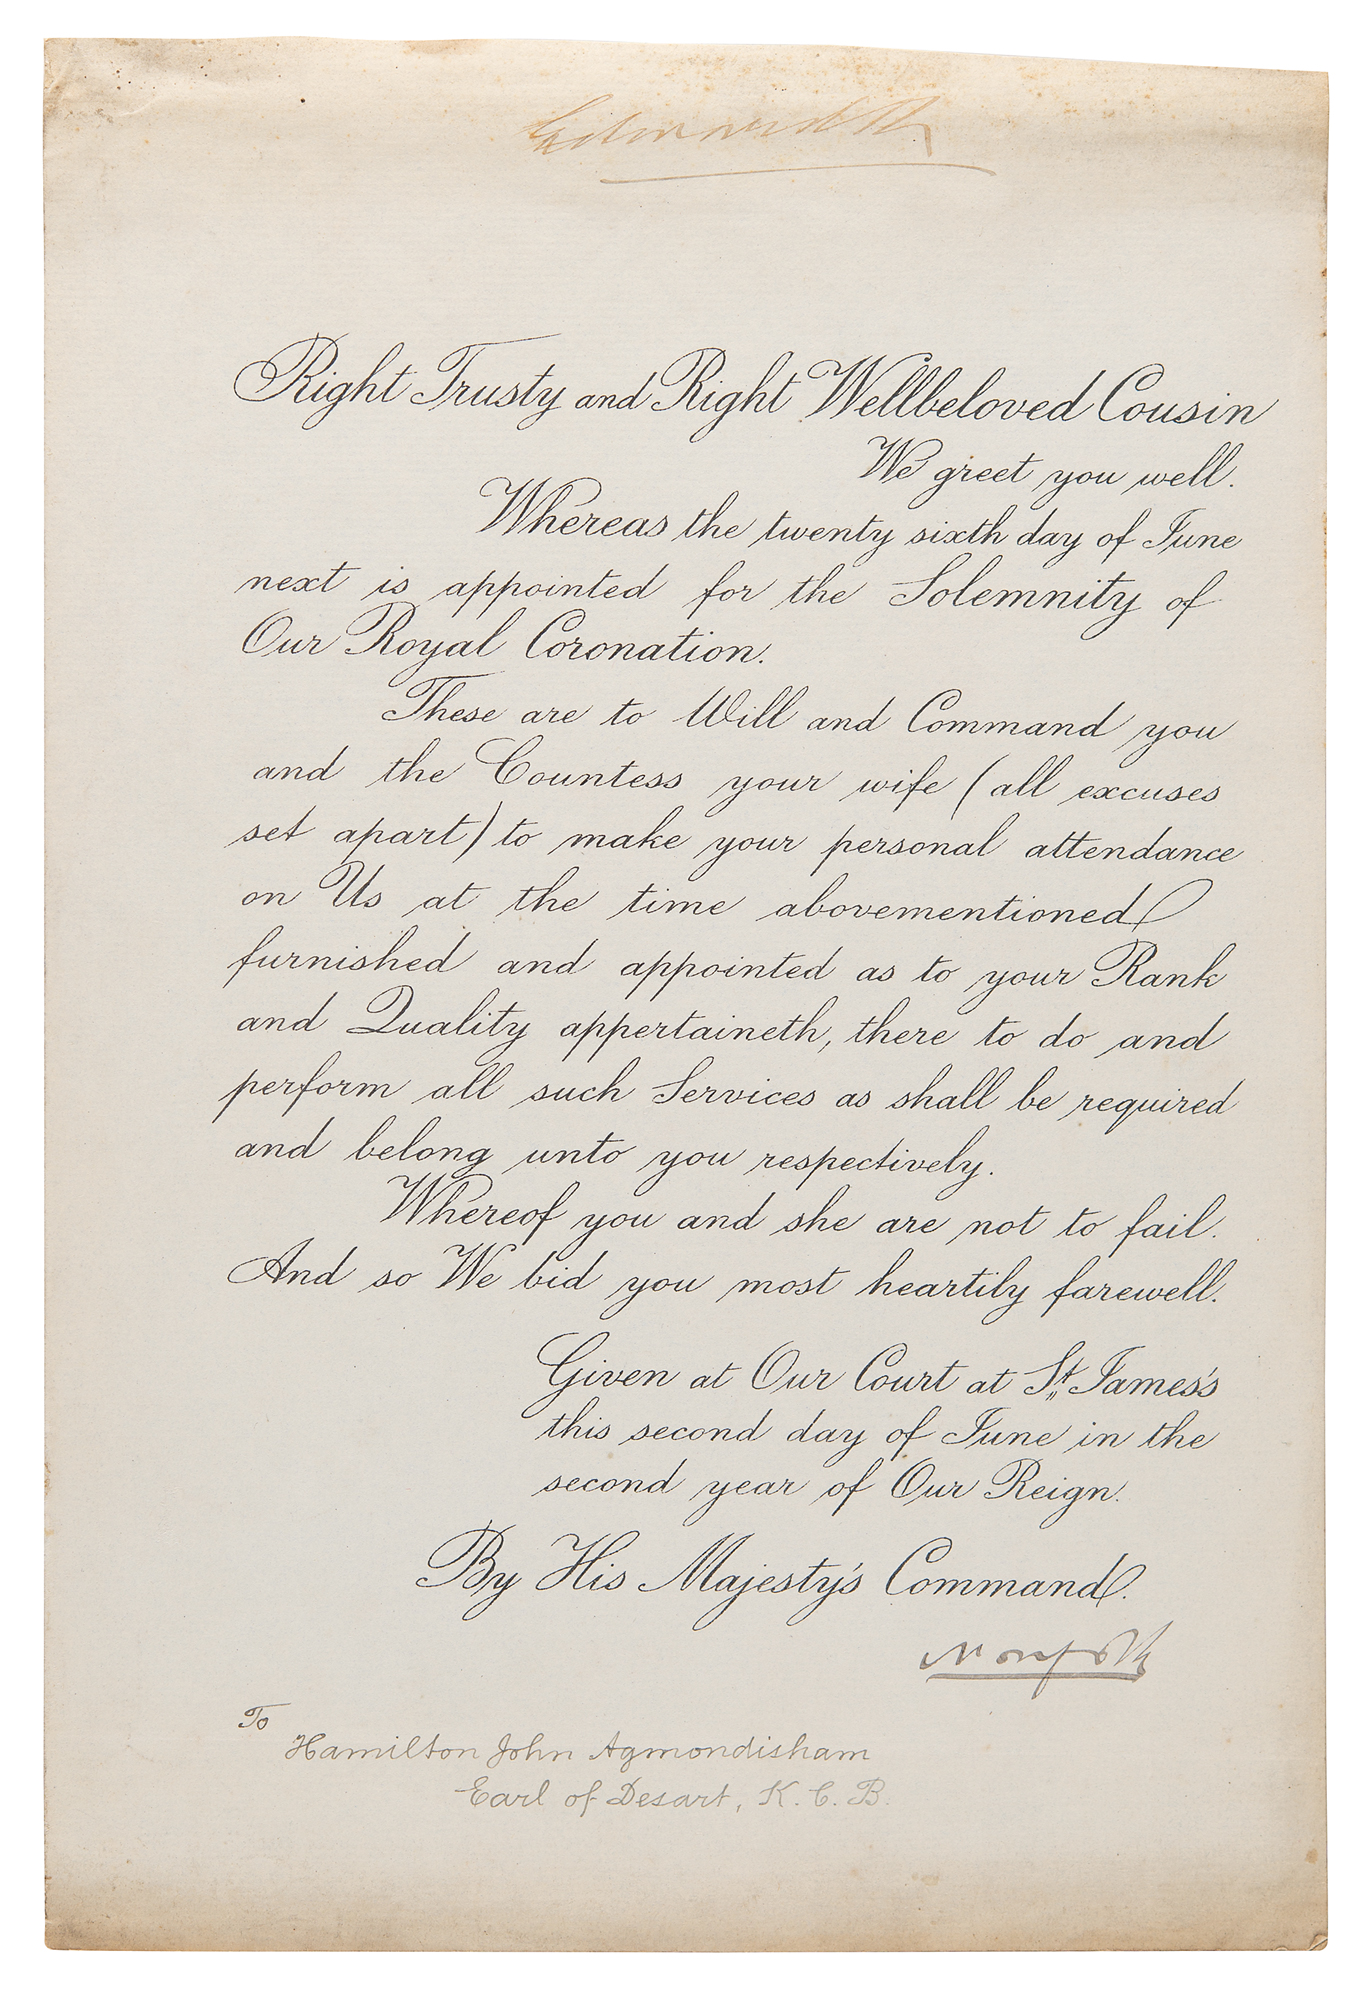 Edward R
Right Trusty and Right Wellbeloved Cousin
We greet you well.
Whereas the twenty sixth day of June
next is appointed for the Solemnity of
Our Royal Coronation.
These are to Will and Command you
and the Countess your wife (all excuses
set apart) to make your personal attendance
on Us at the time abovementioned
furnished and appointed as to your Rank
and Quality appertaineth, there to do and
perform all such Services as shall be required
and belong unto you respectively.
Whereof you and she are not to fail.
And so We bid you most heartily farewell.
Given at Our Court at St James's
this second day of June in the
second year of Our Reign.
By His Majesty's Command.
Norfolk
To
Hamilton John Agmondisham
Earl of Desart, K. C. B.